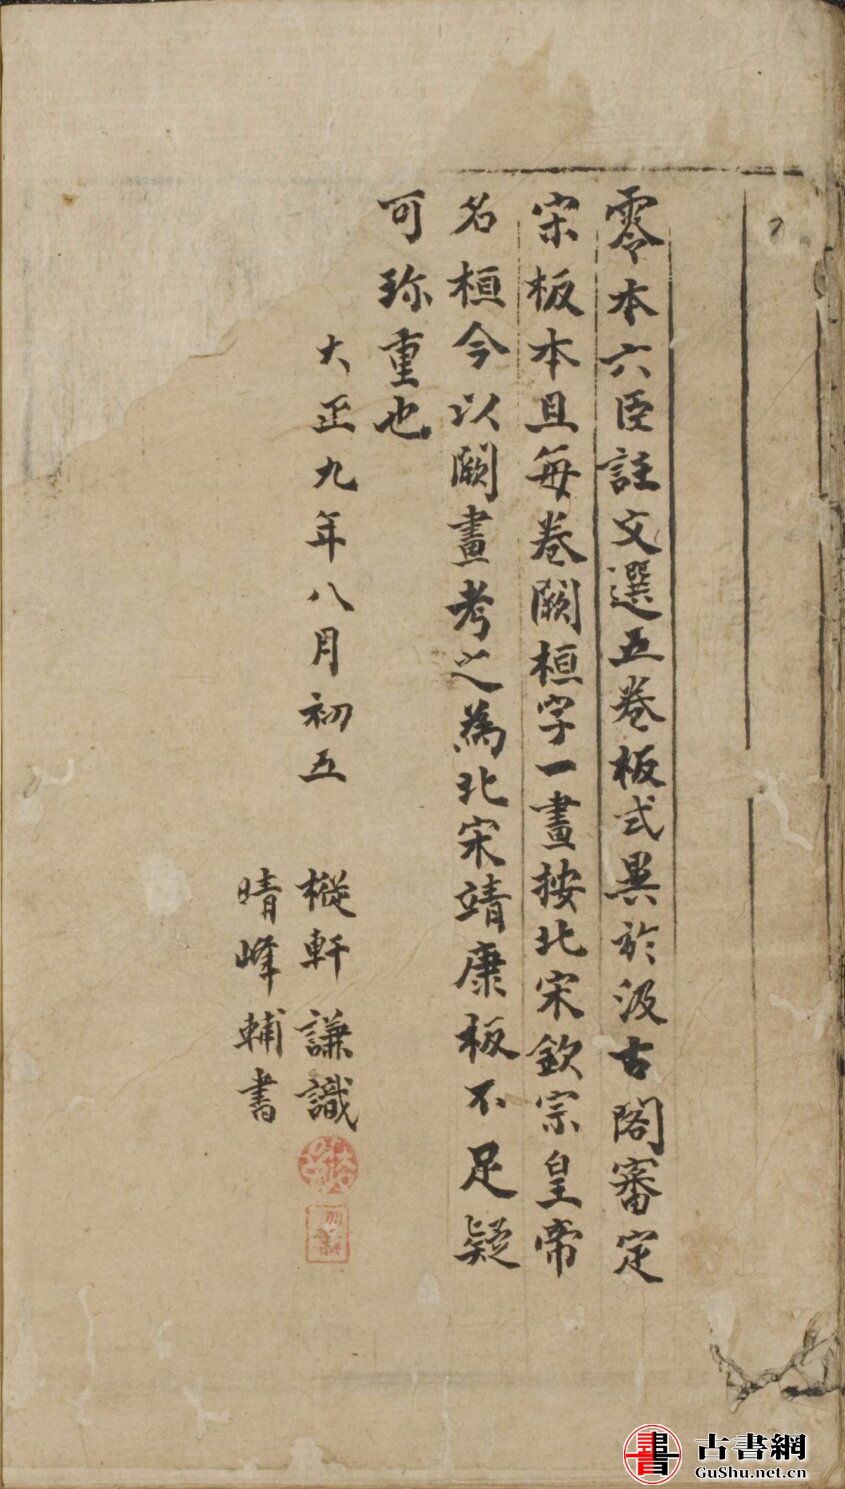 零本六臣註文選五卷板式異於汲古閣審定
宋板本且每卷闕桓字一畫按北宋欽宗皇帝
名桓今以闕畫考之為北宋靖康板不足疑
可珎重也
大正九年八月初五
樅軒謙識
晴峰輔書
古書網
GuShu.net.cn